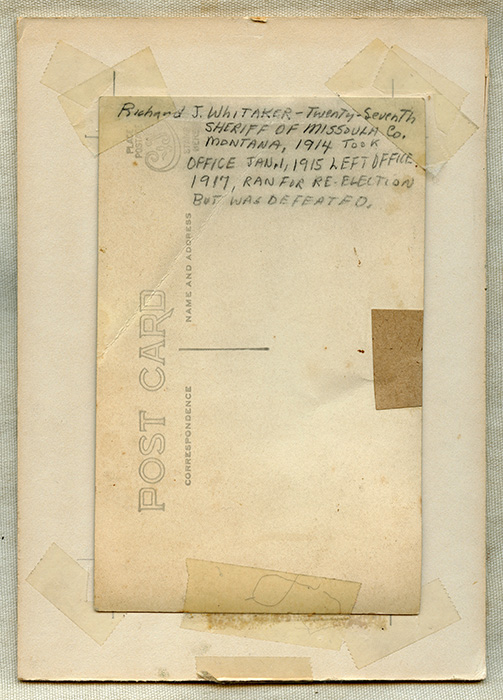 Richard J. WHITAKER - Twenty-Seventh
SHERIFF OF MISSOULA Co.
MONTANA, 1914 TOOK
OFFICE JAN, 1, 1915 LEFT OFFICE.
1917, RAN FOR RE-ELECTION
BUT WAS DEFEATED.
POST CARD
CORRESPONDENCE
NAME AND ADDRESS